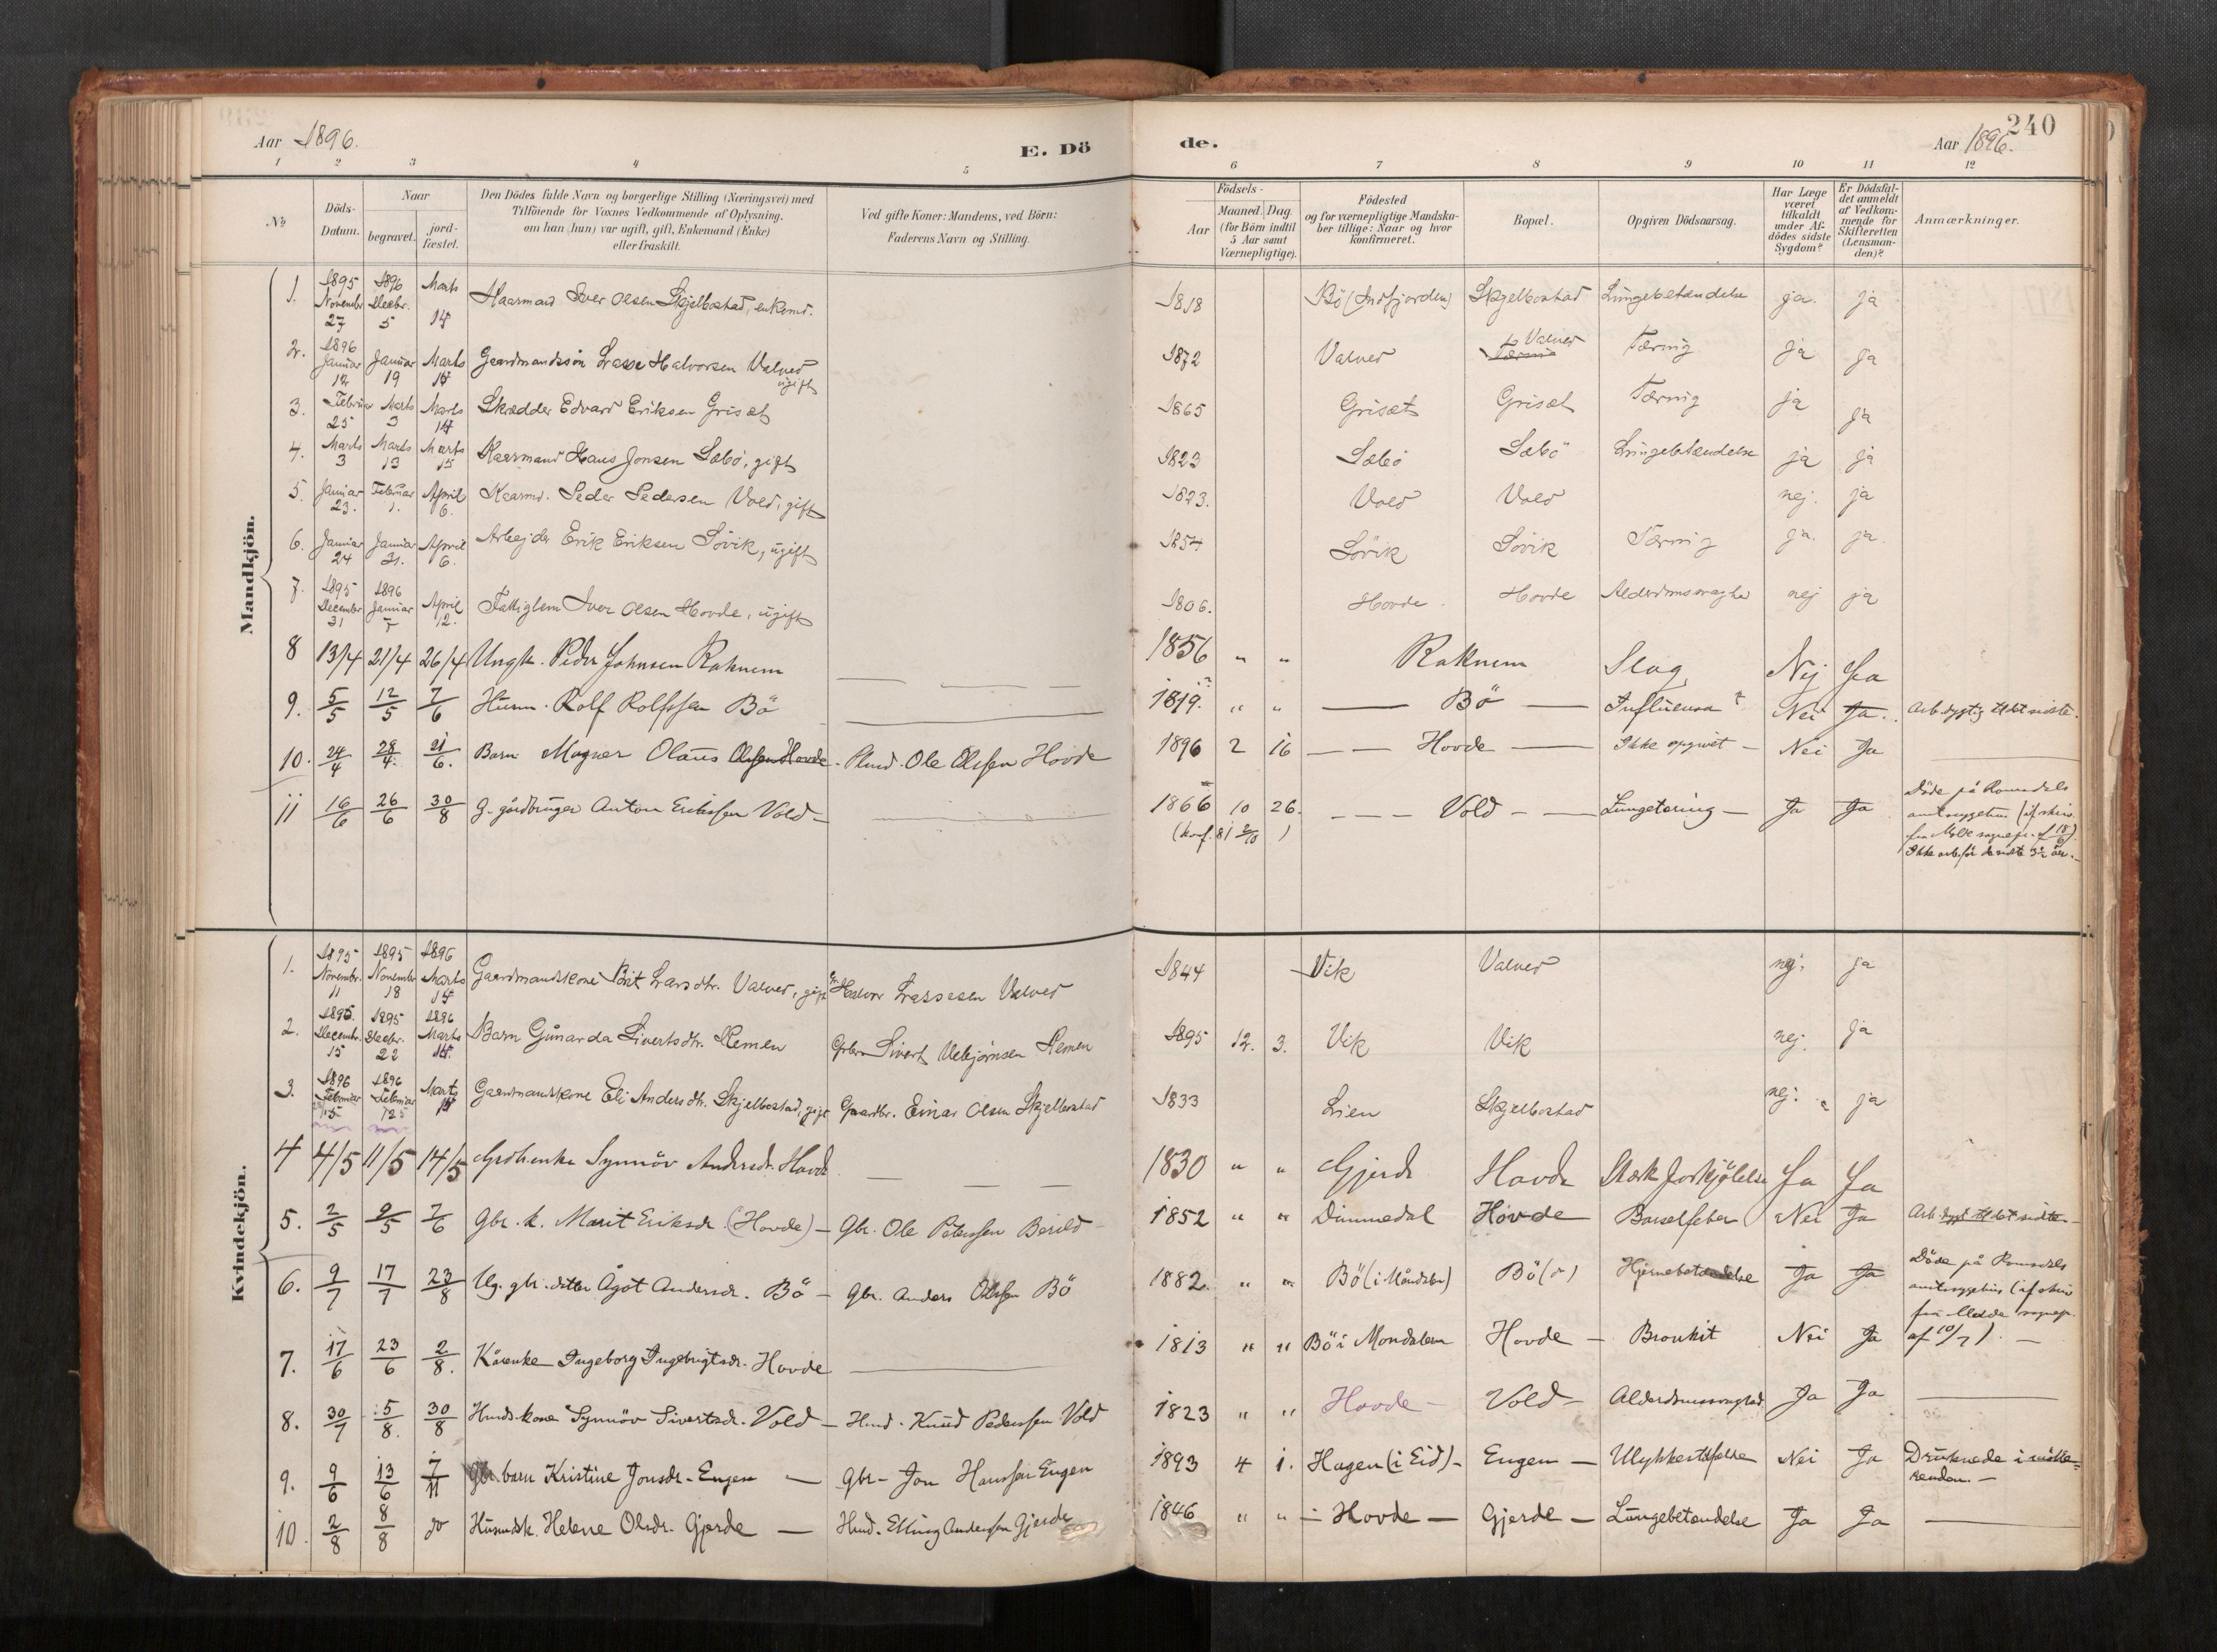 Aar 1896. E. Dö de. Aar 1896. 240
1 2 3 4 5 6 7 8 9 10 11 12
No Döds-Datum. Naar begravet. jord-fæstet. Den Dödes fulde Navn og borgerlige Stilling (Næringsvei) med Tilföiende for Voxnes Vedkommende af Oplysning. om han (hun) var ugift, gift, Enkemand (Enke) eller fraskilt. Ved gifte Koner: Mandens, ved Börn: Faderens Navn og Stilling. Födsels- Aar Maaned. Dag. (for Börn indtil 5 Aar samt Værnepligtige). Födested og for værnepligtige Mandska-ber tillige: Naar og hvor konfirmeret. Bopæl. Opgiven Dödsaarsag. Har Læge været tilkaldt under Af-dödes sidste Sygdom? Er Dödsfal-det anmeldt af Vedkom-mende for Skifteretten (Lensman-den)? Anmærkninger.
Mandkjön.
1. 1895 Novembr 27 1896 Decbr. 5 Marts 15 Kaarmand Iver Olsen Skjelbostad, enkemd. 1818 Bö (Indfjorden) Skjelbostad Lungebetændelse ja. ja
2. 1896 Januar 12 Januar 19 Marts 15 Gaardmandssön Lasse Halvorsen Valved ugift 1872 Valved Valved Tæring ja ja
3. Februar 25 Marts 3 Marts 15 Skrædder Edvard Eriksen Griset 1865 Griset Griset Tæring ja ja
4. Marts 3 Marts 13 Marts 15 Kaarmand Hans Jonsen Sæbö, gift 1823 Sæbö Sæbö Lungebetændelse ja ja
5. Januar 23. Februar 1. April 6. Kaarmd. Peder Pedersen Vold, gift 1823. Vold Vold nej. ja
6. Januar 24 Januar 31. April 6. Arbejder Erik Eriksen Sövik, ugift 1854 Sövik Sövik Tæring ja. ja.
7. 1895 December 31 1896 Januar 7 April 12. Fattiglem Iver Olsen Hovde, ugift 1806. Hovde. Hovde Alderdomssvaghed nej ja
8 13/4 21/4 26/4 Ungk. Peder Johnsen Raknem 1856 " " Raknem Slag, Nej Ja
9. 5/5 12/5 7/6 Husm. Rolf Rolfssen Bö 1819. " " Bö Influensa ? Nei Ja. Arb.dygtig til det sidste.
10. 24/4 28/4. 21/6. Barn Magner Olaus Olssen Hovde - Plmd. Ole Olssen Hovde 1896 2 16 Hovde Ikke opgivet - Nei Ja
11 16/6 26/6 30/8 G. gårdbruger Anton Erikssen Vold - 1866 10 26. Vold Lungetæring - Ja Ja Döde på Romsdals
(konf. 81 2/10) amtssygehus (if. skriv.
fra Molde sognepr. af 18/6).
Ikke arb.för de sidste 3½ år. -
Kvindekjön.
1. 1895 Novembr. 11 1895 Novembr 18 1896 Marts 15 Gaardmandskone Brit Larsdtr. Valved, gift Halvor Lassesen Valved 1844 Vik Valved nej. ja
2. 1895. Decembr. 15 1895 Decbr. 22 1896 Marts 15. Barn Gunarda Sivertsdtr. Remen Sivert Vebjörnsen Remen 1895 12. 3. Vik Vik nej. ja
3. 1896 Februar 15 1896 Februar 25 Marts 15 Gaardmandskone Eli Andersdtr. Skjelbostad, gift Gaardbr. Einar Olsen Skjelbostad 1833 Lien Skjelbostad nej. ja
4 4/5 11/5 14/5 Grdbenke Synnöv Andersdr. Hovde 1830 " " Gjerde Hovde Stærk Forkjölelse Ja Ja
5. 2/5 9/5 7/6 Gbr. k. Marit Eriksdr. (Hovde) - Gbr. Ole Peterssen Berild - 1852 " " Dimmedal Hovde Barselfeber Nei Ja Arb.dygt. til det sidste -
6. 9/7 17/7 23/8 Ug. gbr. datter Ågot Andersdr. Bö - Gbr. Anders Olssen Bö 1882. " " Bö (i Måndalen) Bö Hjernebetændelse Ja Ja Döde på Romsdals
amtssygehus (if skriv
fra Molde sognepr.
7. 17/6 23/6 2/8. Kårenke Ingeborg Ingebrigtsdr. Hovde 1813 " " Bö i Mondalen Hovde - Bronkit Nei Ja af 10/7). -
8. 30/7 5/8. 30/8 Husmds.kone Synnöv Sivertsdr. Vold - Husmd. Knud Pederssen Vold 1823 " " Hovde - Vold - Alderdomssvaghed Ja Ja
9. 9/6 13/6 7/11 Gbr. barn Kristine Jonsdr. Engen - Gbr. - Jon Hanssen Engen 1893 4 1. Hagen (i Eid) - Engen - Ulykkestilfælde Nei Ja Druknede i mölle-
renden. -
10. 2/8 8/8 do Husmdsk. Helene Olsdr. Gjerde - Husmd. Elling Anderssen Gjerde 1846 " " - Hovde - Gjerde - Lungebetændelse Ja Ja